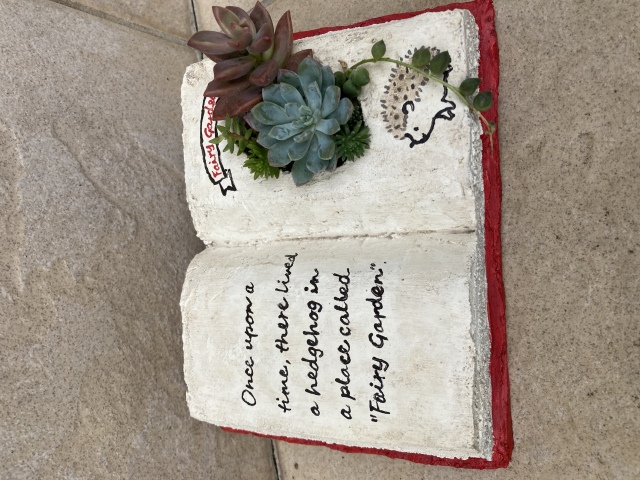 Once upon a
time, there lived
a hedgehog in
a place called
"Fairy Garden".
Fairy Garde